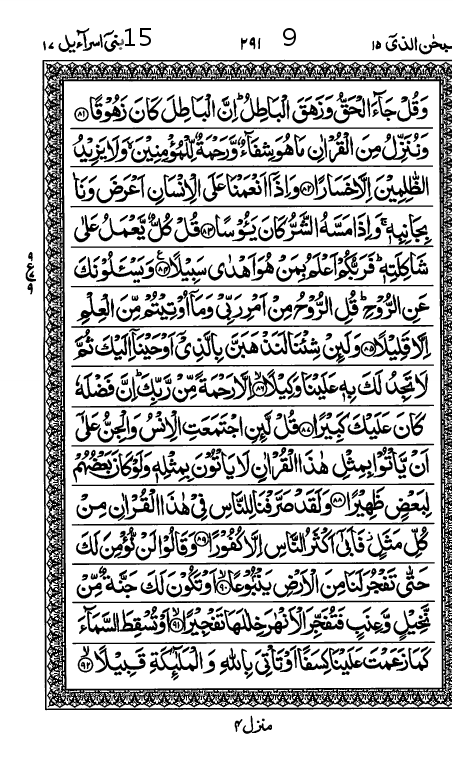 سبحٰن الذی ۱۵ 9 ۲۹۱ 15 بنی اسرآءیل ۱۷
وَقُلْ جَآءَ الْحَقُّ وَزَهَقَ الْبَاطِلُ ؕ اِنَّ الْبَاطِلَ كَانَ زَهُوْقًا ﴿۸۱﴾
وَنُنَزِّلُ مِنَ الْقُرْاٰنِ مَا هُوَ شِفَآءٌ وَّرَحْمَةٌ لِّلْمُؤْمِنِيْنَ ۙ وَلَا يَزِيْدُ
الظّٰلِمِيْنَ اِلَّا خَسَارًا ﴿۸۲﴾ وَاِذَاۤ اَنْعَمْنَا عَلَى الْاِنْسَانِ اَعْرَضَ وَنَاٰ
بِجَانِبِهٖ ۚ وَاِذَا مَسَّهُ الشَّرُّ كَانَ يَـُٔوْسًا ﴿۸۳﴾ قُلْ كُلٌّ يَّعْمَلُ عَلٰى
شَاكِلَتِهٖ ؕ فَرَبُّكُمْ اَعْلَمُ بِمَنْ هُوَ اَهْدٰى سَبِيْلًا ﴿۸۴﴾ وَيَسْـَٔلُوْنَكَ
۹ ع ۹
عَنِ الرُّوْحِ ؕ قُلِ الرُّوْحُ مِنْ اَمْرِ رَبِّيْ وَمَاۤ اُوْتِيْتُمْ مِّنَ الْعِلْمِ
اِلَّا قَلِيْلًا ﴿۸۵﴾ وَلَئِنْ شِئْنَا لَنَذْهَبَنَّ بِالَّذِيْۤ اَوْحَيْنَاۤ اِلَيْكَ ثُمَّ
لَا تَجِدُ لَكَ بِهٖ عَلَيْنَا وَكِيْلًا ﴿۸۶﴾ اِلَّا رَحْمَةً مِّنْ رَّبِّكَ ؕ اِنَّ فَضْلَهٗ
كَانَ عَلَيْكَ كَبِيْرًا ﴿۸۷﴾ قُلْ لَّئِنِ اجْتَمَعَتِ الْاِنْسُ وَالْجِنُّ عَلٰۤى
اَنْ يَّاْتُوْا بِمِثْلِ هٰذَا الْقُرْاٰنِ لَا يَاْتُوْنَ بِمِثْلِهٖ وَلَوْ كَانَ بَعْضُهُمْ
لِبَعْضٍ ظَهِيْرًا ﴿۸۸﴾ وَلَقَدْ صَرَّفْنَا لِلنَّاسِ فِيْ هٰذَا الْقُرْاٰنِ مِنْ
كُلِّ مَثَلٍ ؗ فَاَبٰۤى اَكْثَرُ النَّاسِ اِلَّا كُفُوْرًا ﴿۸۹﴾ وَقَالُوْا لَنْ نُّؤْمِنَ لَكَ
حَتّٰى تَفْجُرَ لَنَا مِنَ الْاَرْضِ يَنْۢبُوْعًا ﴿۹۰﴾ اَوْ تَكُوْنَ لَكَ جَنَّةٌ مِّنْ
نَّخِيْلٍ وَّعِنَبٍ فَتُفَجِّرَ الْاَنْهٰرَ خِلٰلَهَا تَفْجِيْرًا ﴿۹۱﴾ اَوْ تُسْقِطَ السَّمَآءَ
كَمَا زَعَمْتَ عَلَيْنَا كِسَفًا اَوْ تَاْتِيَ بِاللّٰهِ وَالْمَلٰٓئِكَةِ قَبِيْلًا ﴿۹۲﴾
منزل ۴